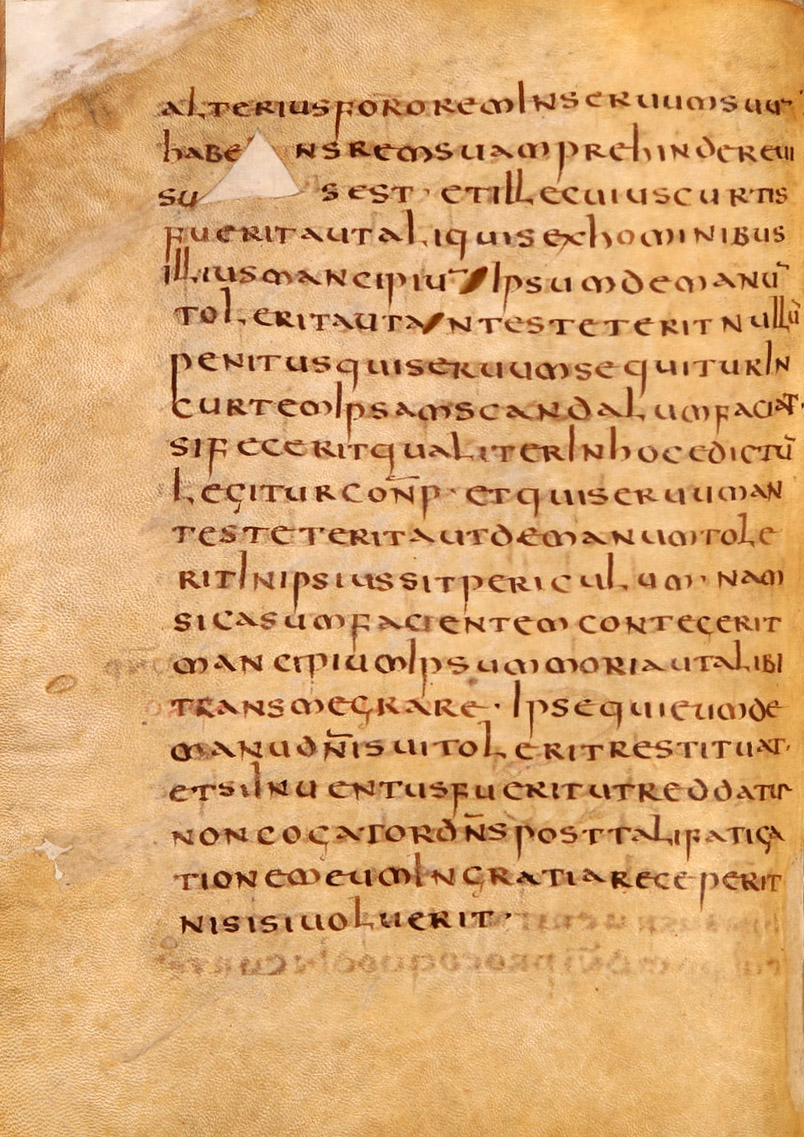 alteriusfororeminseruumsuu
habe nsremsuamprehindereui
su sest · etillecuiuscurtis
fueritautaliquisexhominibus
illiusmancipiū ipsumdemanū
toleritauta ntesteteritnullū
penitusquiseruumsequiturin
curtemipsamscandalumfaciat·
sifeceritqualiterinhocedictū
legiturconp̄ · etquiseruuman
testeteritautdemanumtole
ritinipsiussitpericulum · nam
sicasumfacientemcontegerit
mancipiumipsummoriautalibi
transmegrare · ipsequieumde
manudn̄isuitoleritrestituat·
etsiinuentusfueritutreddatur
noncogatordn̄sposttalifatiga
tionemeumingratiareceperit
nisisiuoluerit ·